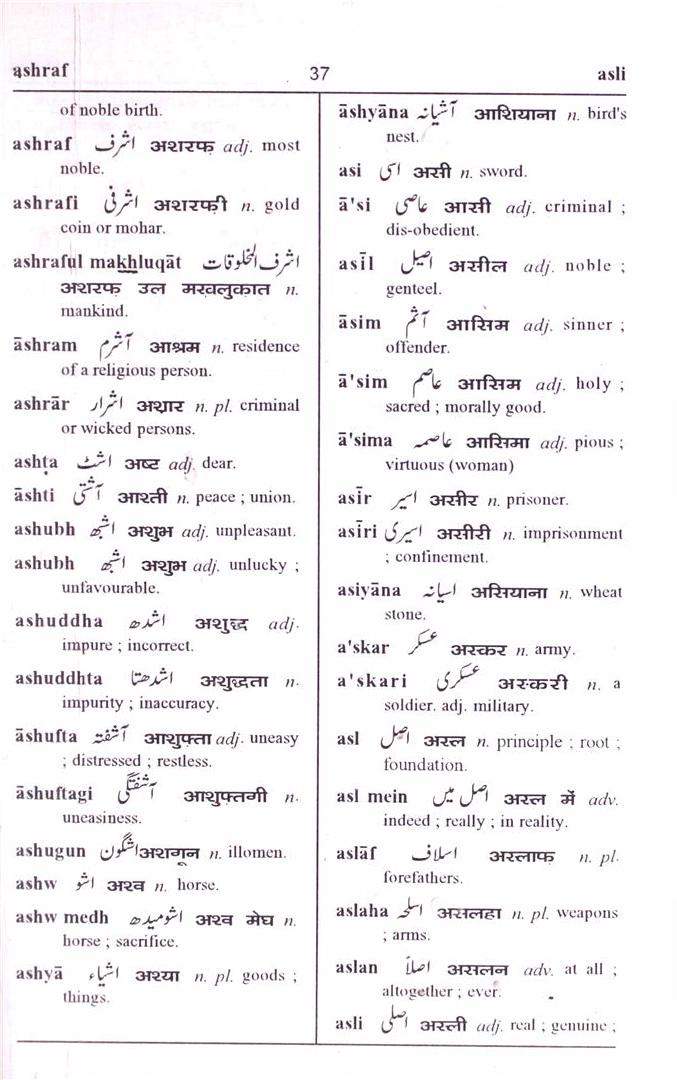 ashraf 37 asli
of noble birth.
ashraf اشرف अशरफ adj. most
noble.
ashrafi اشرفی अशरफी n. gold
coin or mohar.
ashraful makhluqāt اشرف المخلوقات
अशरफ उल मखलुकात n.
mankind.
āshram آشرم आश्रम n. residence
of a religious person.
ashrār اشرار अश्रार n. pl. criminal
or wicked persons.
ashṭa اشٹ अष्ट adj. dear.
āshti آشتی आश्ती n. peace ; union.
ashubh اشبھ अशुभ adj. unpleasant.
ashubh اشبھ अशुभ adj. unlucky ;
unfavourable.
ashuddha اشدھ अशुद्ध adj.
impure ; incorrect.
ashuddhta اشدھتا अशुद्धता n.
impurity ; inaccuracy.
āshufta آشفتہ आशुफ्ता adj. uneasy
; distressed ; restless.
āshuftagi آشفتگی आशुफ्तगी n.
uneasiness.
ashugun اشگون अशगून n. illomen.
ashw اشو अश्व n. horse.
ashw medh اشومیدھ अश्व मेघ n.
horse ; sacrifice.
ashyā اشیاء अश्या n. pl. goods ;
things.
āshyāna آشیانہ आशियाना n. bird's
nest.
asi اسی असी n. sword.
ā'si عاصی आसी adj. criminal ;
dis-obedient.
asīl اصیل असील adj. noble ;
genteel.
āsim آثم आसिम adj. sinner ;
offender.
ā'sim عاصم आसिम adj. holy ;
sacred ; morally good.
ā'sima عاصمہ आसिमा adj. pious ;
virtuous (woman)
asīr اسیر असीर n. prisoner.
asīri اسیری असीरी n. imprisonment
; confinement.
asiyāna اسیانہ असियाना n. wheat
stone.
a'skar عسکر अस्कर n. army.
a'skari عسکری अस्करी n. a
soldier. adj. military.
asl اصل अस्ल n. principle ; root ;
foundation.
asl mein اصل میں अस्ल में adv.
indeed ; really ; in reality.
aslāf اسلاف अस्लाफ n. pl.
forefathers.
aslaha اسلحہ असलहा n. pl. weapons
; arms.
aslan اصلاً असलन adv. at all ;
altogether ; ever.
asli اصلی अस्ली adj. real ; genuine ;